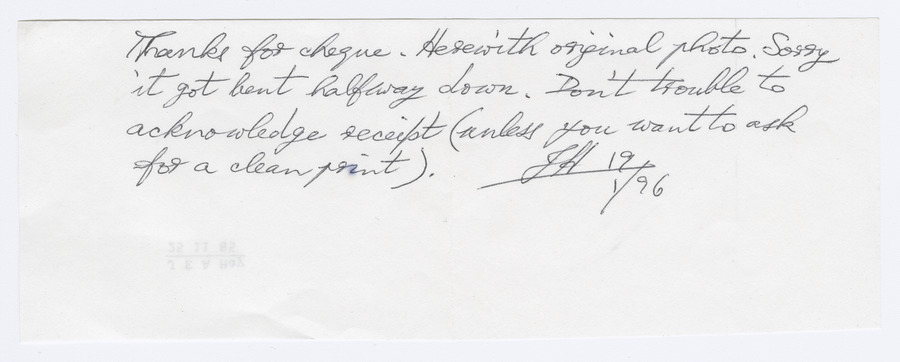 Thanks for cheque. Herewith original photo. Sorry
it got bent halfway down. Don't trouble to
acknowledge receipt (unless you want to ask
for a clean print).
JH 19/1/96
25 11 95
J E A Hay